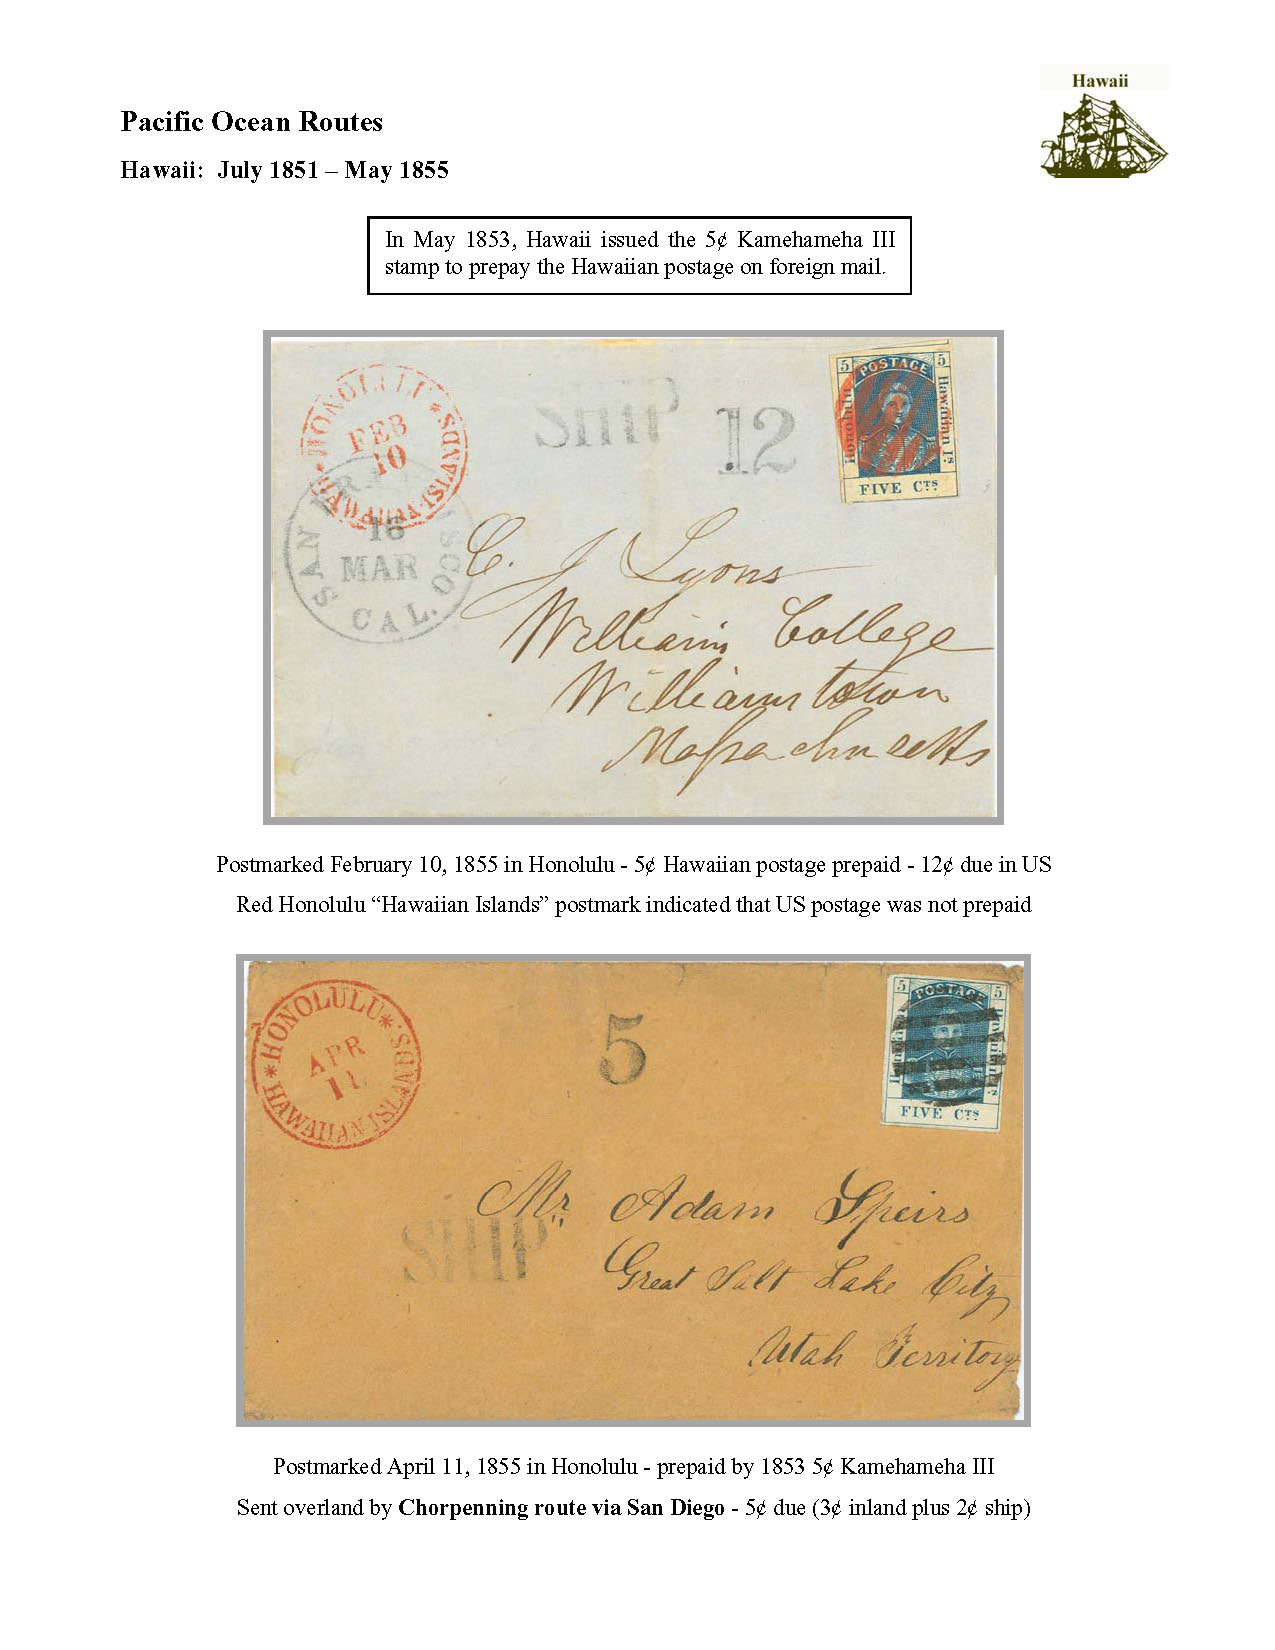 Hawaii
Pacific Ocean Routes
Hawaii: July 1851 – May 1855
In May 1853, Hawaii issued the 5¢ Kamehameha III
stamp to prepay the Hawaiian postage on foreign mail.
HONOLULU
FEB
10
HAWAIIAN ISLANDS
SHIP
12
5 POSTAGE 5
Honolulu
Hawaiian Is.
FIVE CTS
SAN FRANCISCO
16
MAR
CAL.
C. J Lyons
William College
Williamstown
Massachusetts
Postmarked February 10, 1855 in Honolulu - 5¢ Hawaiian postage prepaid - 12¢ due in US
Red Honolulu “Hawaiian Islands” postmark indicated that US postage was not prepaid
HONOLULU
APR
11
HAWAIIAN ISLANDS
5
5 POSTAGE 5
FIVE CTS
Mr Adam Speirs
SHIP
Great Salt Lake City
Utah Territory
Postmarked April 11, 1855 in Honolulu - prepaid by 1853 5¢ Kamehameha III
Sent overland by Chorpenning route via San Diego - 5¢ due (3¢ inland plus 2¢ ship)